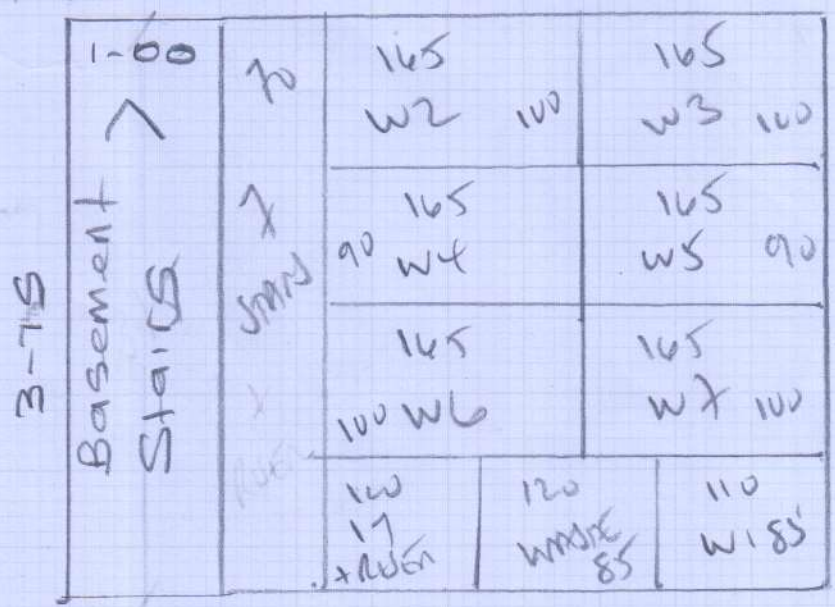 3-75
1-00
Basement >
Stairs
70
7
STAIRS
+
RISER
165
W2 100
165
W3 100
165
90 W4
165
W5 90
165
100 W6
165
W7 100
100
17
+ RISER
120
WASTE
85
110
W1 85